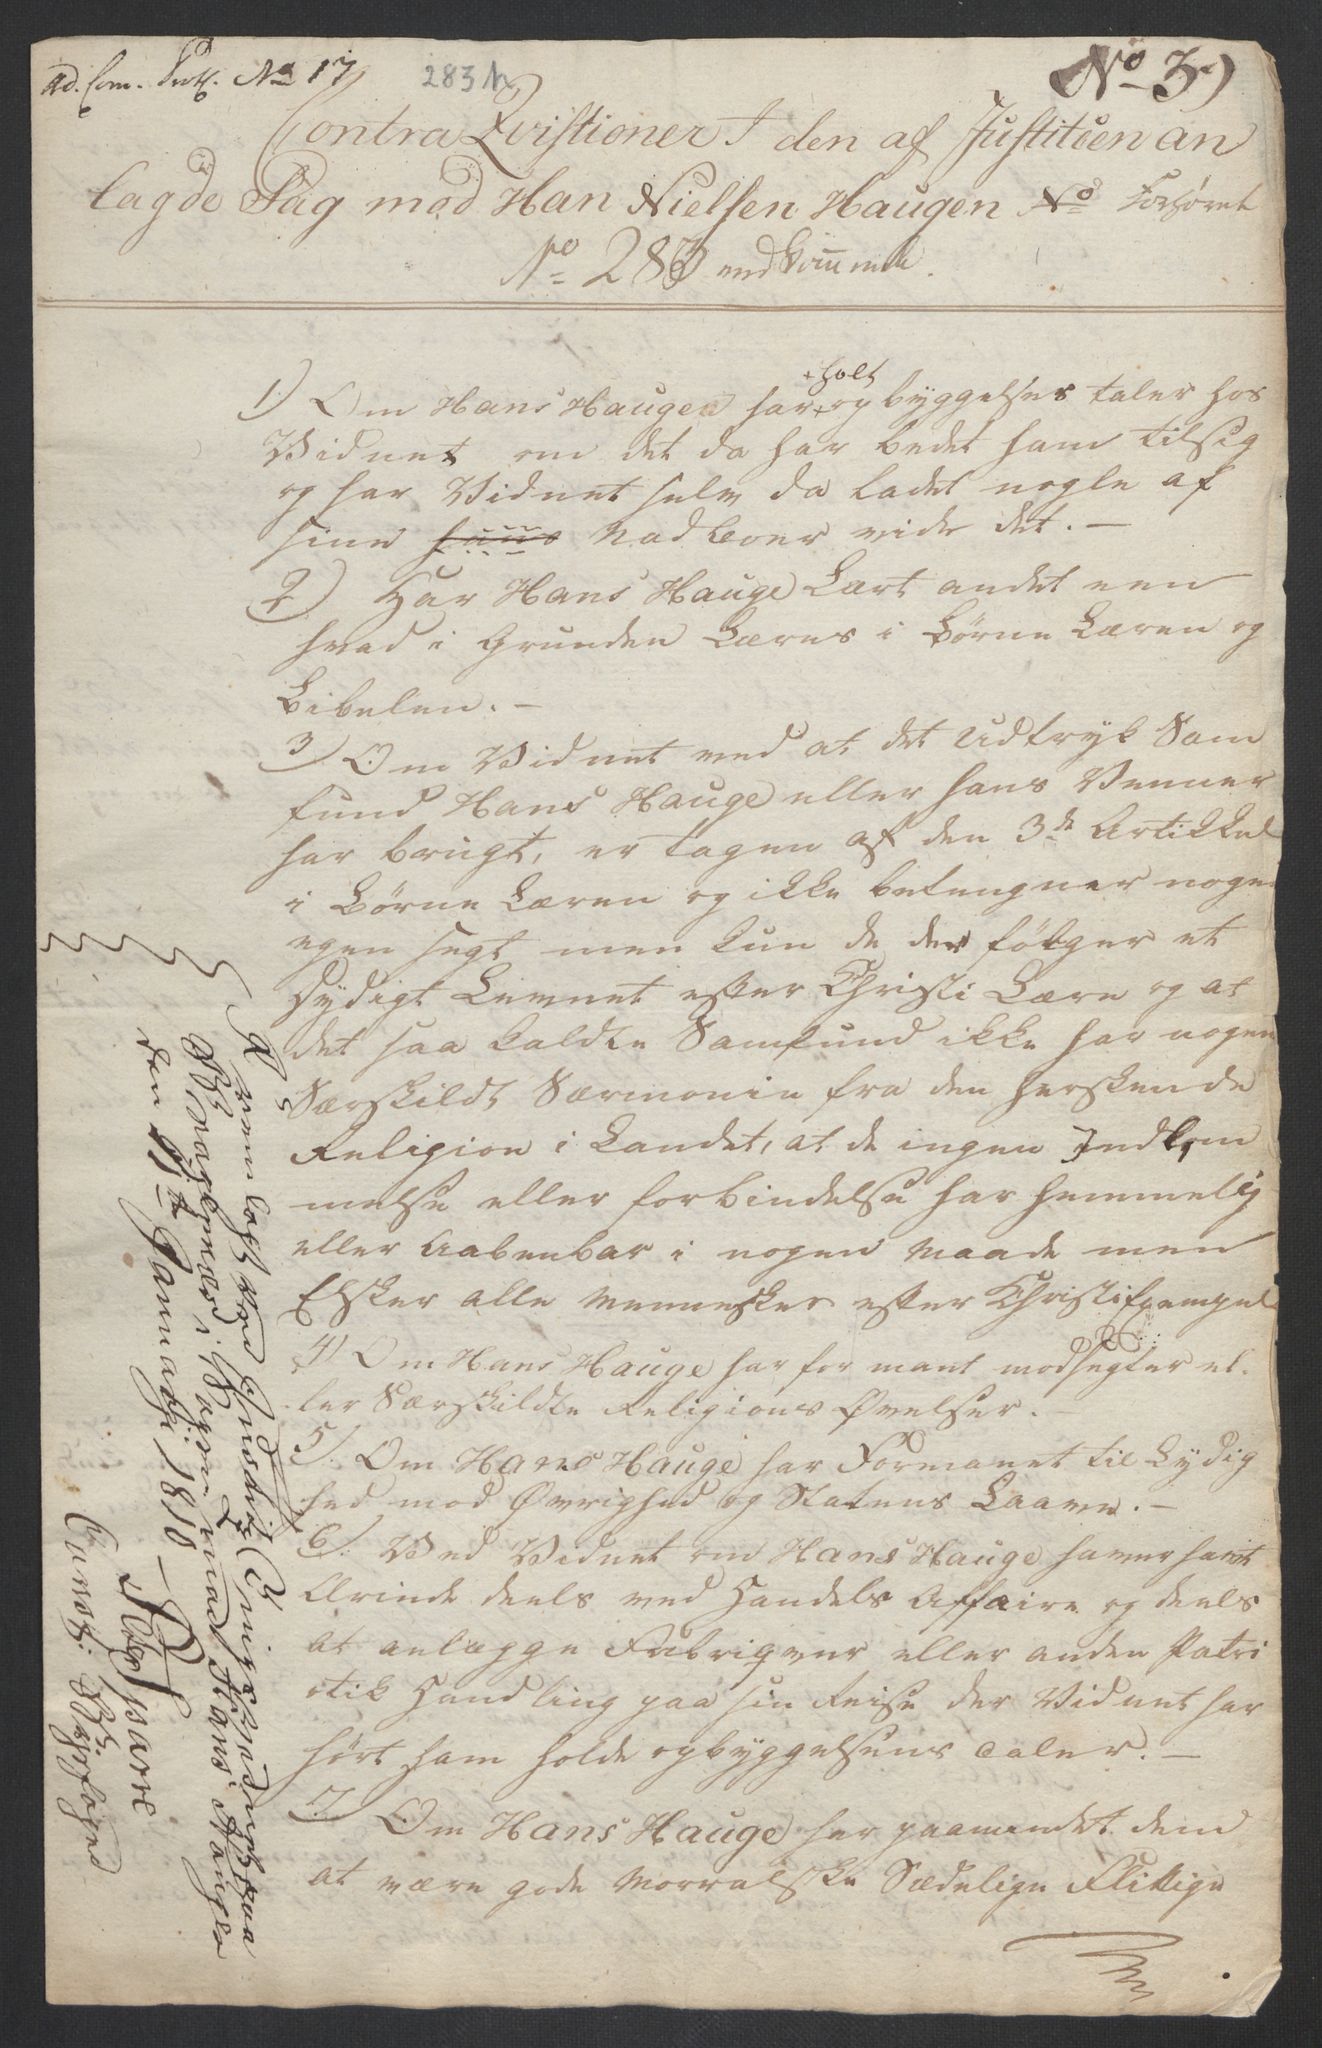 ad. Com. Prot. No 17
283 
No 3)
Contra Qvistioner I den af Justitsen an
lagde Sag mod Han Nielsen Haugen No Forhøret
No 283 vedkommende.
1) Om Hans Haugen har + opbyggelses taler hos
+ holt
Vidnet om det da har bedet ham til sig
og har Vidnet selv da ladet nogle af
sine Nadboer vide det. —
2) Har Hans Hauge Lært andet een
hvad i Grunden Læres i Børne Læren og
Bibelen. —
3) Om Vidnet ved at det Udtryk Sam
fund Hans Hauge eller hans Venner
har brugt, er tagen af den 3de Artikkel
i Børne Læren og ikke beteugner nogen
egen segt men kun de der følger et
Dydigt Levnet efter Christi Lære og at
det saa kaldte Samfund ikke har nogen
Særskildt Særmonie fra den herskende
Religion i Landet, at de ingen Indkom
melse eller forbindelse har hemmelig
eller Aabenbar i nogen Maade men
Elsker alle Mennesker efter Christi Exempel
4) Om Hans Hauge har formant modsegter el-
ler Særskildte Religions Øvelser.
5) Om Hans Hauge har Formanet til Lydig
hed mod Øvrighed og Statens Laave. —
6) Ved Vidnet om Hans Hauge haver havt
Ærinde deels ved Handels Affaire og deels
at anlægge Fabriqver eller anden Patri
otik Handling paa sin Reise der Vidnet har
hørt ham holde opbyggelsens taler. —
7) Om Hans Hauge har paamindet dem
at være gode Morralske Sædelige Flittige
Fremlagt ved Indstik Commissions paa
Bragernæs i Sagen mod Hans Hauge
den 9de Januarii 1810 —
Const. Byefoged